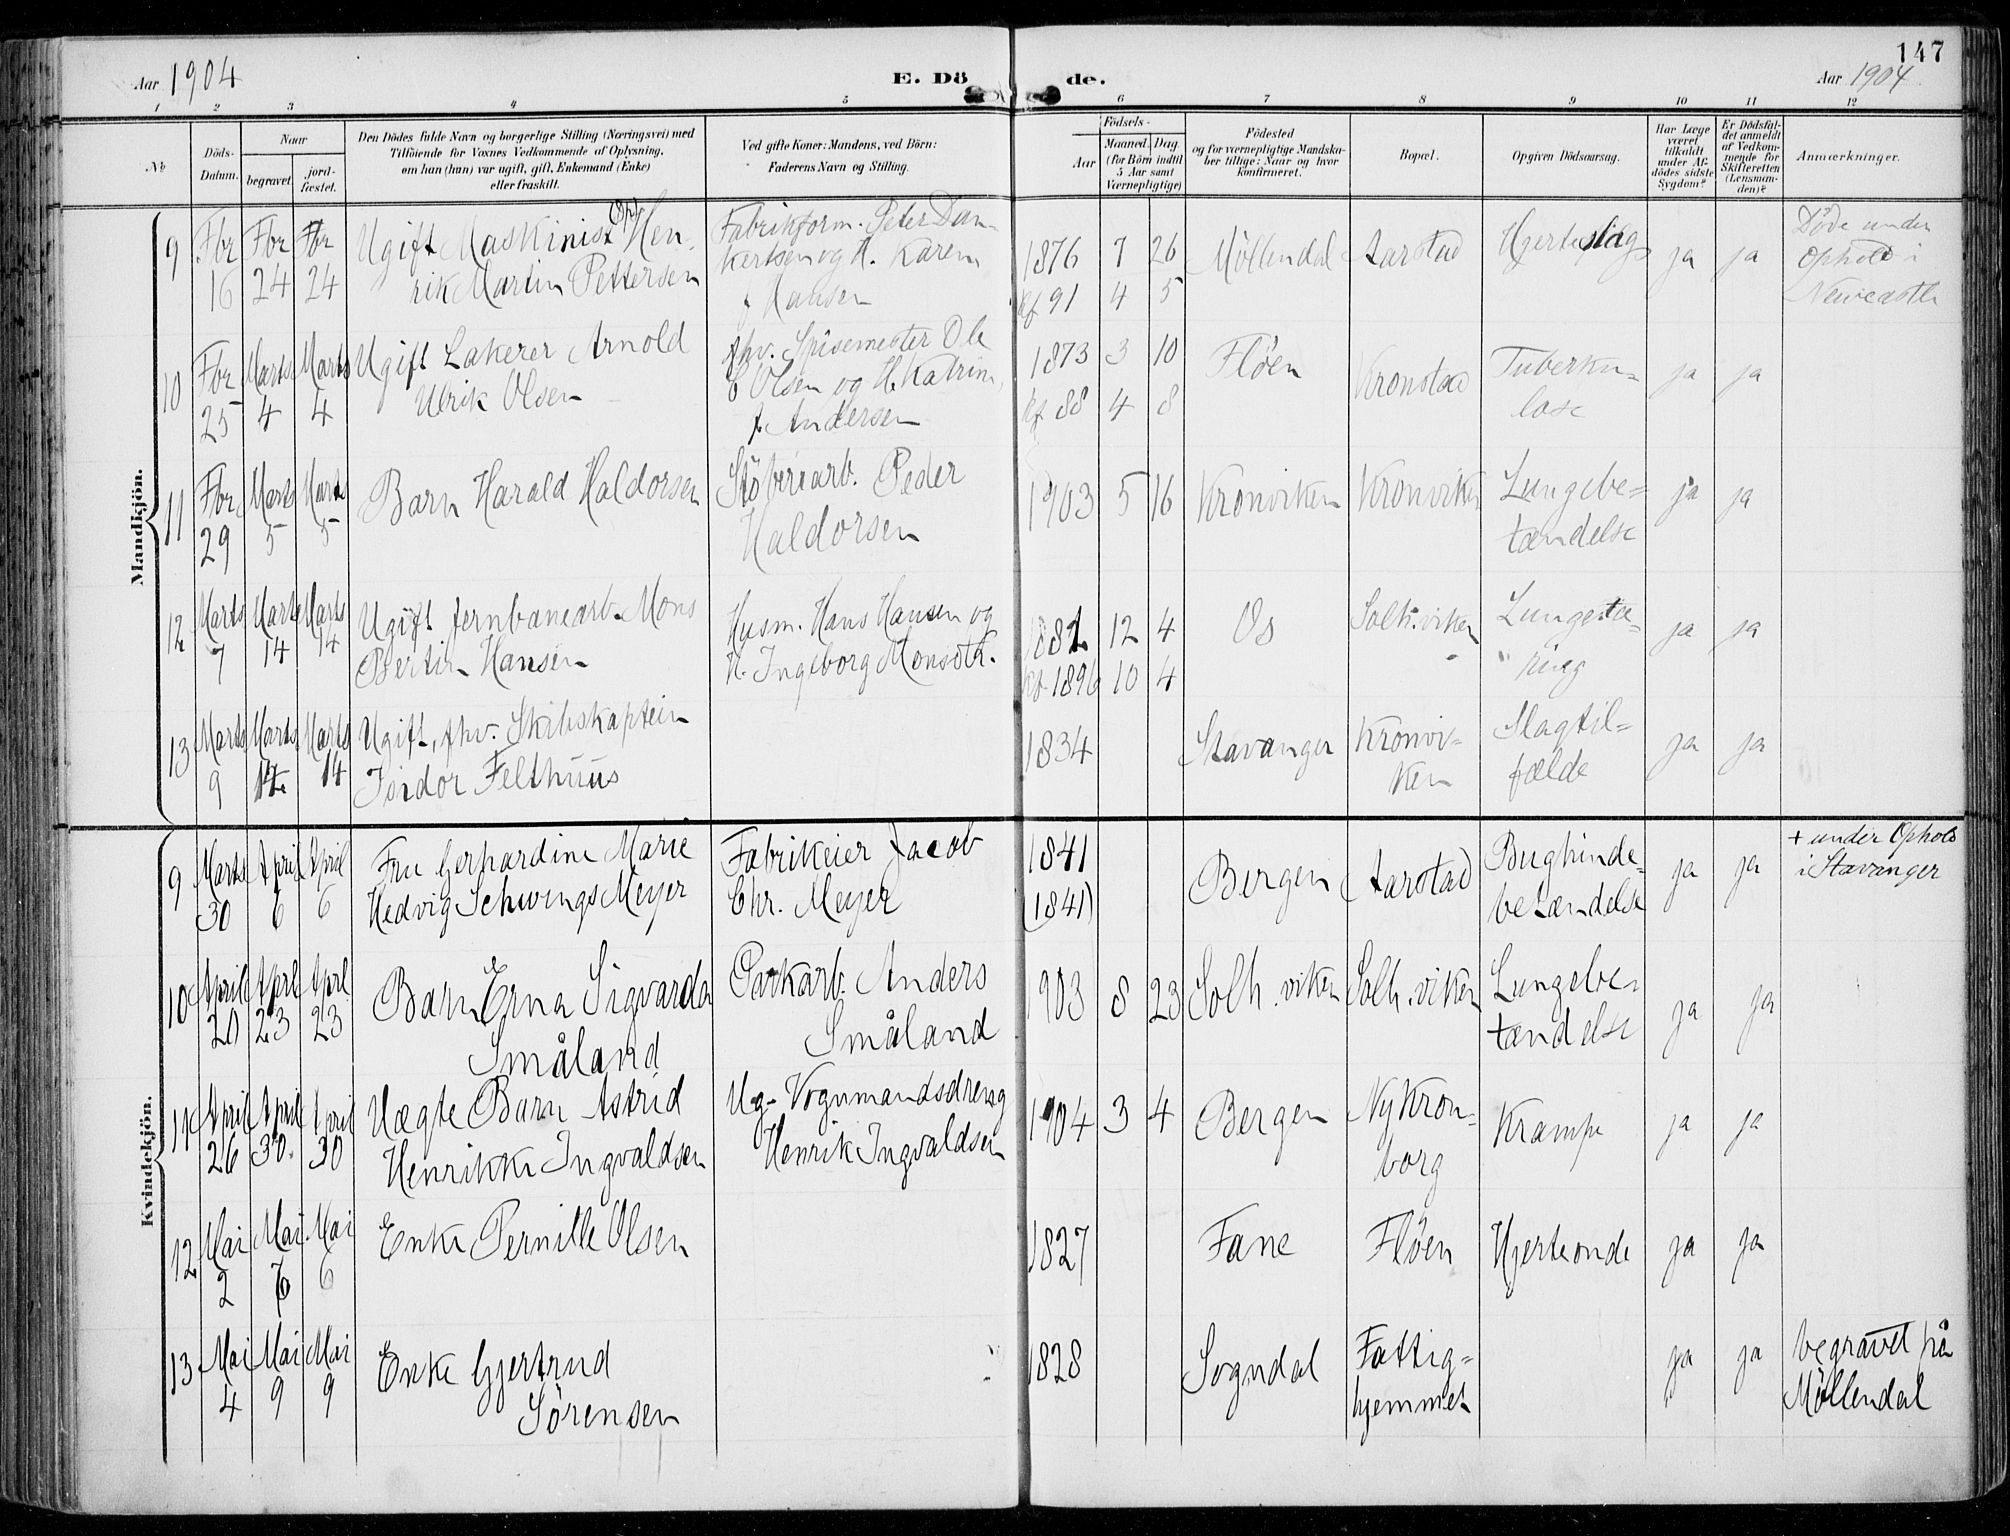 147
Aar 1904
E. Dö de.
Aar 1904
1 2 3 4 5 6 7 8 9 10 11 12
No
Döds-
Datum.
Naar
begravet.
jord-
fæstet.
Den Dödes fulde Navn og borgerlige Stilling (Næringsvei) med
Tilföiende for Voxnes Vedkommende af Oplysning,
om han (hun) var ugift, gift, Enkemand (Enke)
eller fraskilt.
Ved gifte Koner: Mandens, ved Börn:
Faderens Navn og Stilling.
Födsels-
Aar
Maaned. Dag.
(for Börn indtil
5 Aar samt
Værnepligtige)
Födested
og for værnepligtige Mandska-
ber tillige: Naar og hvor
konfirmeret.
Bopæl.
Opgiven Dödsaarsag.
Har Læge
været
tilkaldt
under Af-
dödes sidste
Sygdom?
Er Dödsfal-
det anmeldt
af Vedkom-
mende for
Skifteretten
(Lensman-
den)?
Anmærkninger.
Mandkjön.
9
Fbr
16
Fbr
24
Fbr
24
Ugift Maskinist Hen-
rik Martin Pettersen
Fabrikform. Peter Dan-
kertsen og H. Karen
f Hansen
1876 7 26
kf 91 4 5
Møllendal
Aarstad
Hjerteslag
ja
ja
Døde under
Ophold i
Newcastle
10
Fbr
25
Marts
4
Marts
4
Ugift Lakerer Arnold
Ulrik Olsen
fhv. Spisemester Ole
O Olsen og H. Katrine
f. Andersen
1873 3 10
kf 88 4 8
Fløen
Kronstad
Tuberku-
lose
ja
ja
11
Fbr
29
Marts
5
Marts
5
Barn Harald Haldorsen
Støberiarb. Peder
Haldorsen
1903 5 16
Kronviken
Kronviken
Lungebe-
tændelse
ja
ja
12
Marts
7
Marts
14
Marts
14
Ugift Jernbanearb. Mons
Bertin Hansen
Husm. Hans Hansen og
H. Ingeborg Monsdtr.
1882 12 4
kf. 1896 10 4
Os
Solh.viken
Lungetæ-
ring
ja
ja
13
Marts
9
Marts
14
Marts
14
Ugift, fhv. Skibskaptein
Isidor Felthuus
1834
Stavanger
Kronvi-
ken
Slagtil-
fælde
ja
ja
Kvindekjön.
9
Marts
30
April
6
April
6
Fru Gerhardine Marie
Hedvig Schwings Meyer
Fabrikeier Jacob
Chr. Meyer
1841
(1841)
Bergen
Aarstad
Bughinde-
betændelse
ja
ja
+ under Ophold
i Stavanger
10
April
20
April
23
April
23
Barn Erna Sigvarda
Småland
Parkarb. Anders
Småland
1903 8 23
Solh.viken
Solh.viken
Lungebe-
tændelse
ja
ja
11
April
26
April
30.
April
30
Uægte Barn Astrid
Henrikke Ingvaldsen
Ug. Vognmandsdreng
Henrik Ingvaldsen
1904 3 4
Bergen
Ny Kron-
borg
Krampe
ja
ja
12
Mai
2
Mai
6
Mai
6
Enke Pernille Olsen
1827
Fane
Fløen
Hjerteonde
ja
ja
13
Mai
4
Mai
9
Mai
9
Enke Gjertrud
Sørensen
1828
Sogndal
Fattig-
hjemmet
ja
ja
begravet på
Møllendal